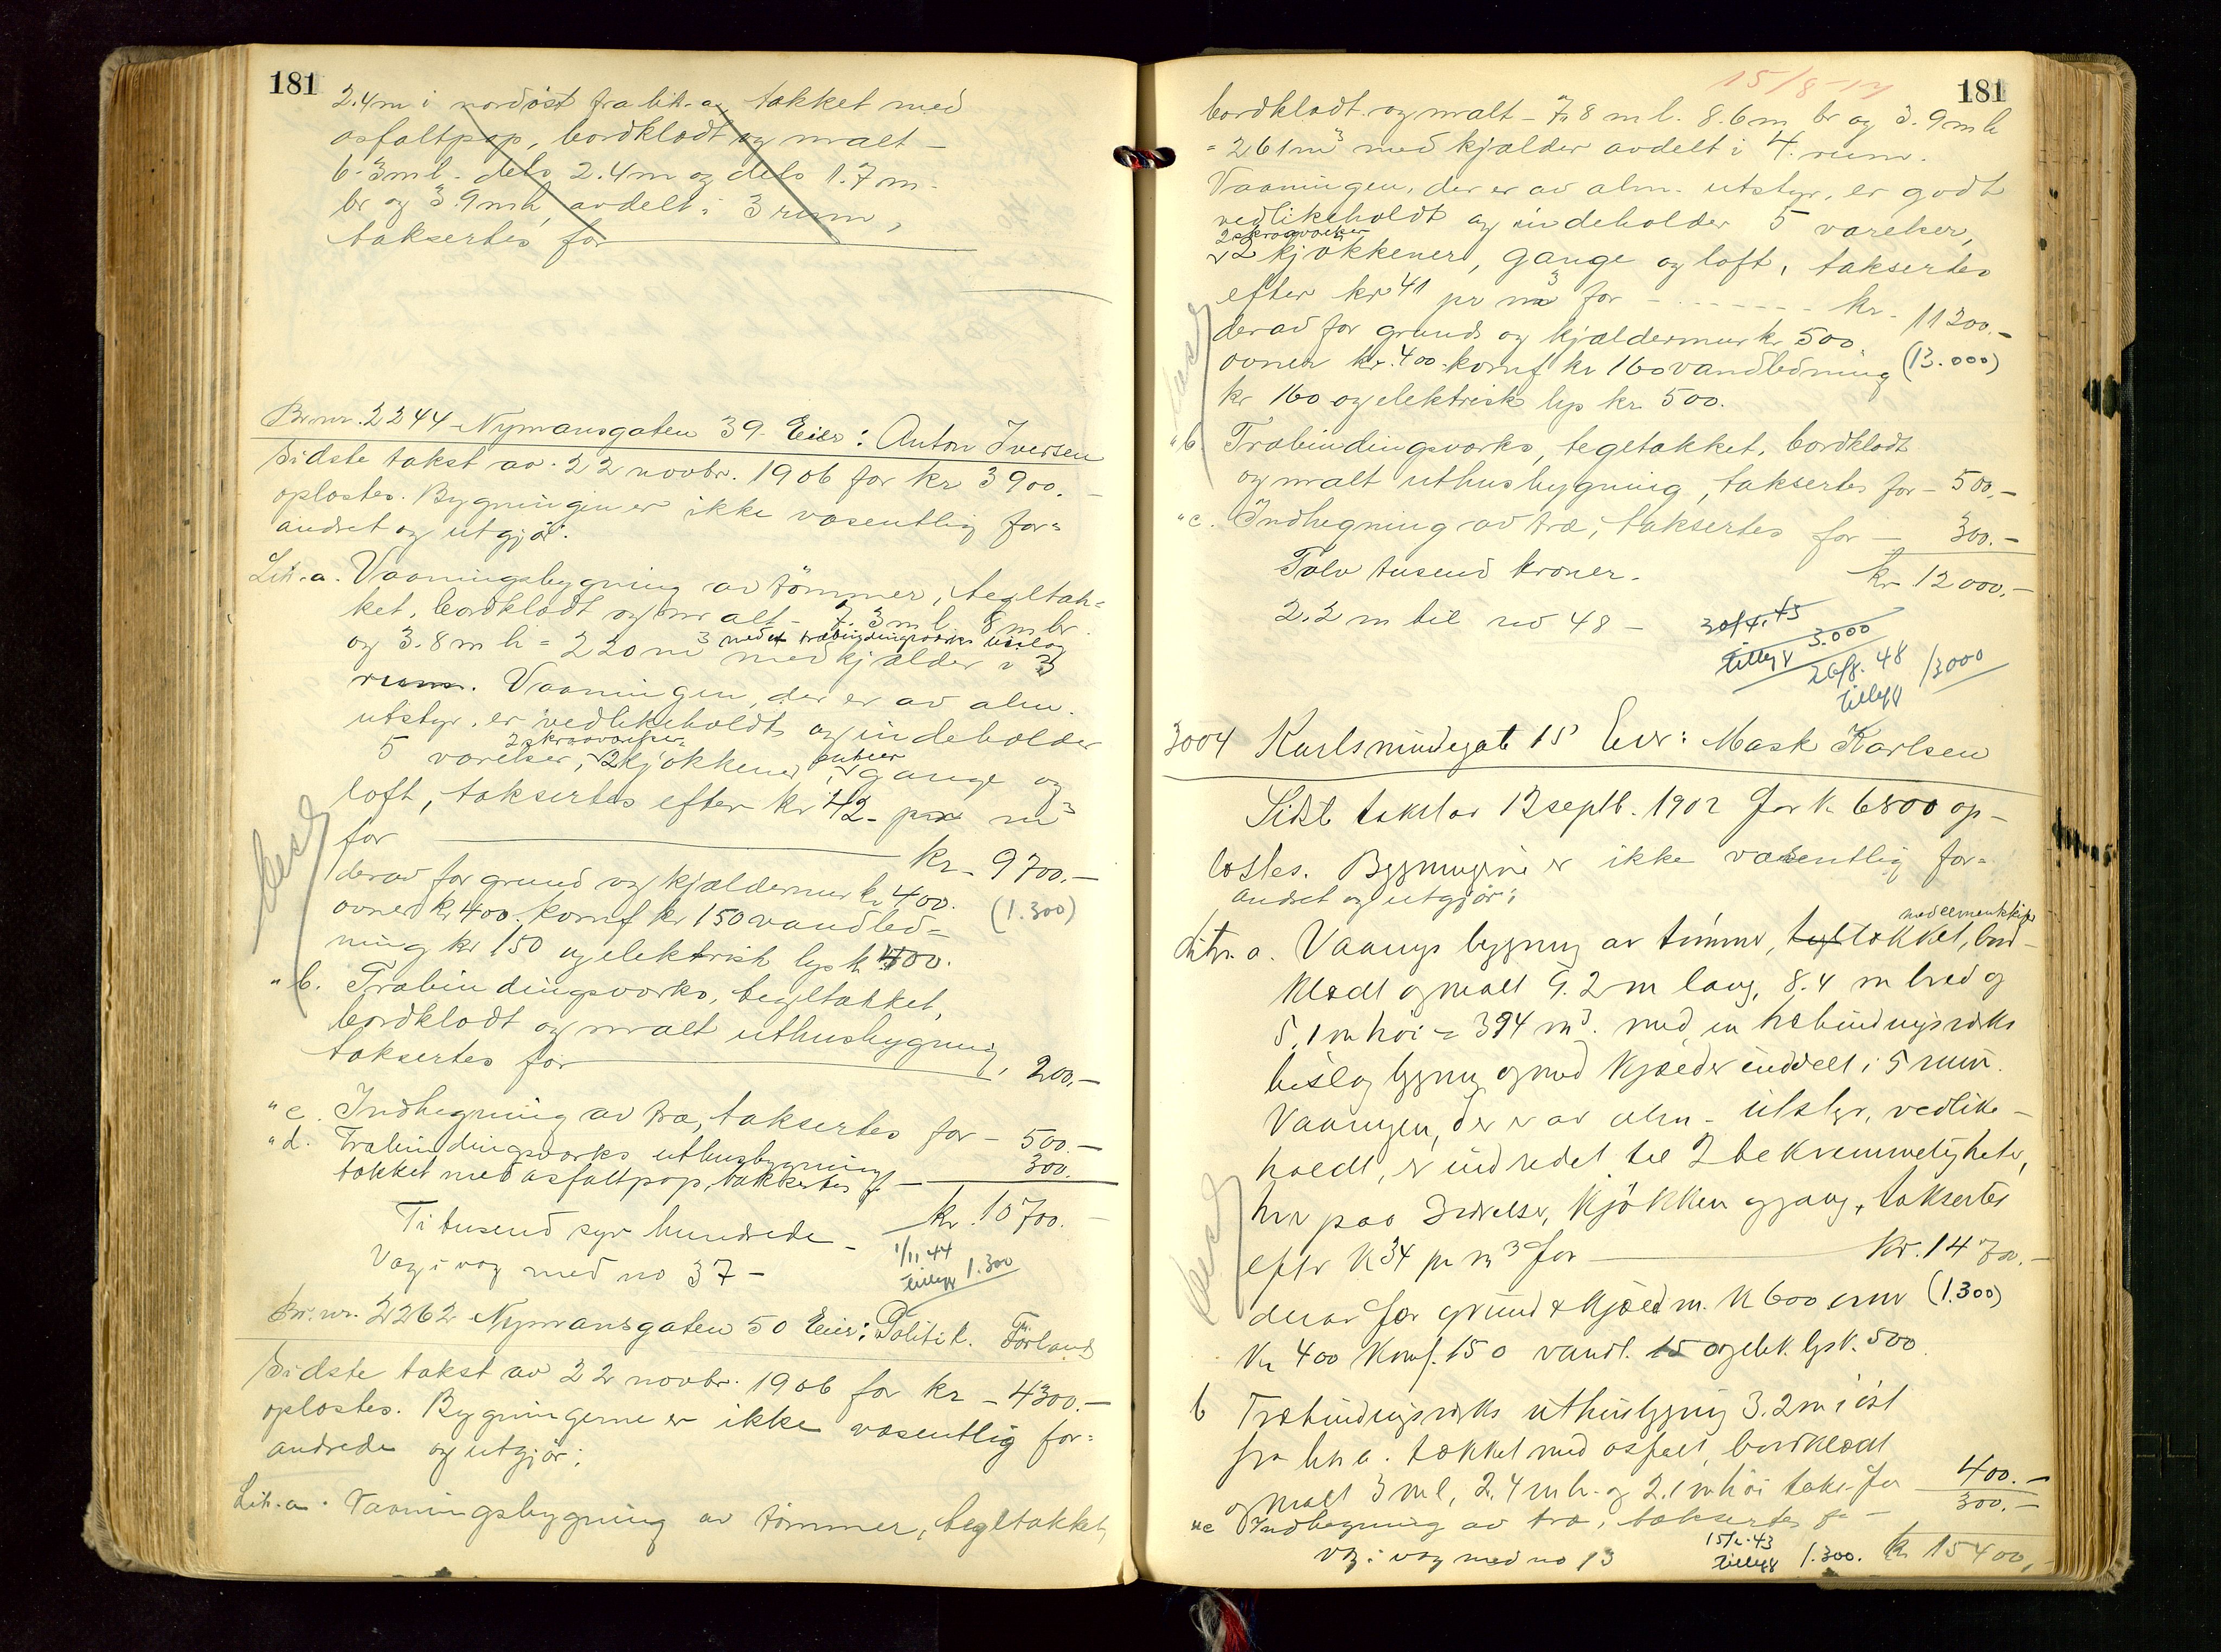 181
2.4 m i nordöst fra lit. a, tækket med
asfaltpap, bordklædt og malt -
6.3 m l. dels 2.4 m og dels 1.7 m
br og 3.9 m h, avdelt i 3 rum,
taksertes for
Br.nr. 2244 Nymansgaten 39. Eier: Anton Iversen
Sidste takst av 22 novbr. 1906 for kr 3900.-
oplæstes. Bygningen er ikke væsentlig for=
andret og utgjör:
Lit. a. Vaaningsbygning av tömmer, tegltæk=
ket, bordklædt og malt - 7.3 m l. 8 m br.
og 3.8 m h = 220 m³ med kjælder i 3
med et træbindingsverks bislag
rum. Vaaningen, der er av alm.
utstyr, er vedlikeholdt og indeholder
5 værelser, 2 kjökkener, gange og
2 skraaværelser entreer
loft, taksertes efter kr 42 - pr m³
for kr. 9700.-
derav for grund og kjældermur kr 400. (1.300)
ovner kr 400. komf kr 150 vandled=
ning kr 150 og elektrisk lys kr 400.
" b. Træbindingsværks, tegltækket,
bordklædt og malt uthusbygning,
taksertes for 200.-
" c. Indhegning av træ, taksertes for - 500.-
" d. Træbindingsværks uthusbygning
tækket med asfaltpap, taksertes f. - 300.
Ti tusend syv hundrede - kr. 10700.-
Væg i væg med no 37 - 1/11 44
tillegg 1.300
Br. nr. 2262 Nymansgaten 50 Eier: Politik. Förland
Sidste takst av 22 novbr. 1906 for kr - 4300.-
oplæstes. Bygningerne er ikke væsentlig for=
andrede og utgjör:
Lit. a. Vaaningsbygning av tömmer, tegltækket,
15/8-17
181
bordklædt og malt - 7.8 m l. 8.6 m br og 3.9 m h
= 261 m³ med kjælder avdelt i 4 rum.
Vaaningen, der er av alm. utstyr, er godt
vedlikeholdt og indeholder 5 værelser,
2 skraaværelser
2 kjökkener, gange og loft, taksertes
efter kr 41 pr m³ for - - - - - - kr. 11200.-
derav for grund og kjældermur kr 500. (13.000)
ovner kr. 400. komf kr 160 vandledning
kr 160 og elektrisk lys kr 500.
" b. Træbindingsværks, tegltækket, bordklædt
og malt uthusbygning, taksertes for - 500.-
" c. Indhegning av træ, taksertes for - 300.-
Tolv tusend kroner. kr 12000.-
2.2 m til no 48 - 30/4.45
tillegg 3.000
26/8. 48
tillegg 13000
3004 Karlsmindegate 15 Eier: Mask Karlsen
Sidste takst av 12 septb. 1902 for kr 6800 op-
læstes. Bygningerne er ikke væsentlig for=
andret og utgjör:
Litr. a. Vaanings bygning av tömmer, tegltækket, bord-
med cementskifer
klædt og malt 9.2 m lang, 8.4 m bred og
5.1 m höi = 394 m³. med en træbindingsværks
bislag bygning og med kjælder inddelt i 5 rum.
Vaaningen, der er av alm. utstyr, vedlike-
holdt, er indredet til 2 bekvemmeligheter,
hver paa 3 værelser, kjökken og gang, taksertes
efter kr 34 pr m³ for kr. 14700.-
derav for grund & kjældm. kr 600 ovner (1.300)
kr 400 komf. 150 vandl. 15 og elek. lys k. 500
b Træbindingsværks uthusbygning 3.2 m i öst
fra litr a. tækket med asfalt, bordklædt
og malt 3 m l, 2.4 m br. og 2.1 m höi takse. for 400.-
" c Indhegning av træ, taksertes for - 300.-
væg i væg med no 13 15/2.43
tillegg 1.300. kr 15400.-